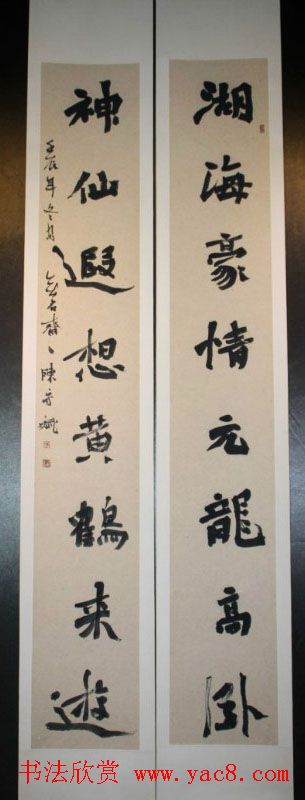 湖海豪情元龍高卧
神仙遐想黄鶴来遊
壬辰年冬月
陳守
书法欣赏 www.yac8.com